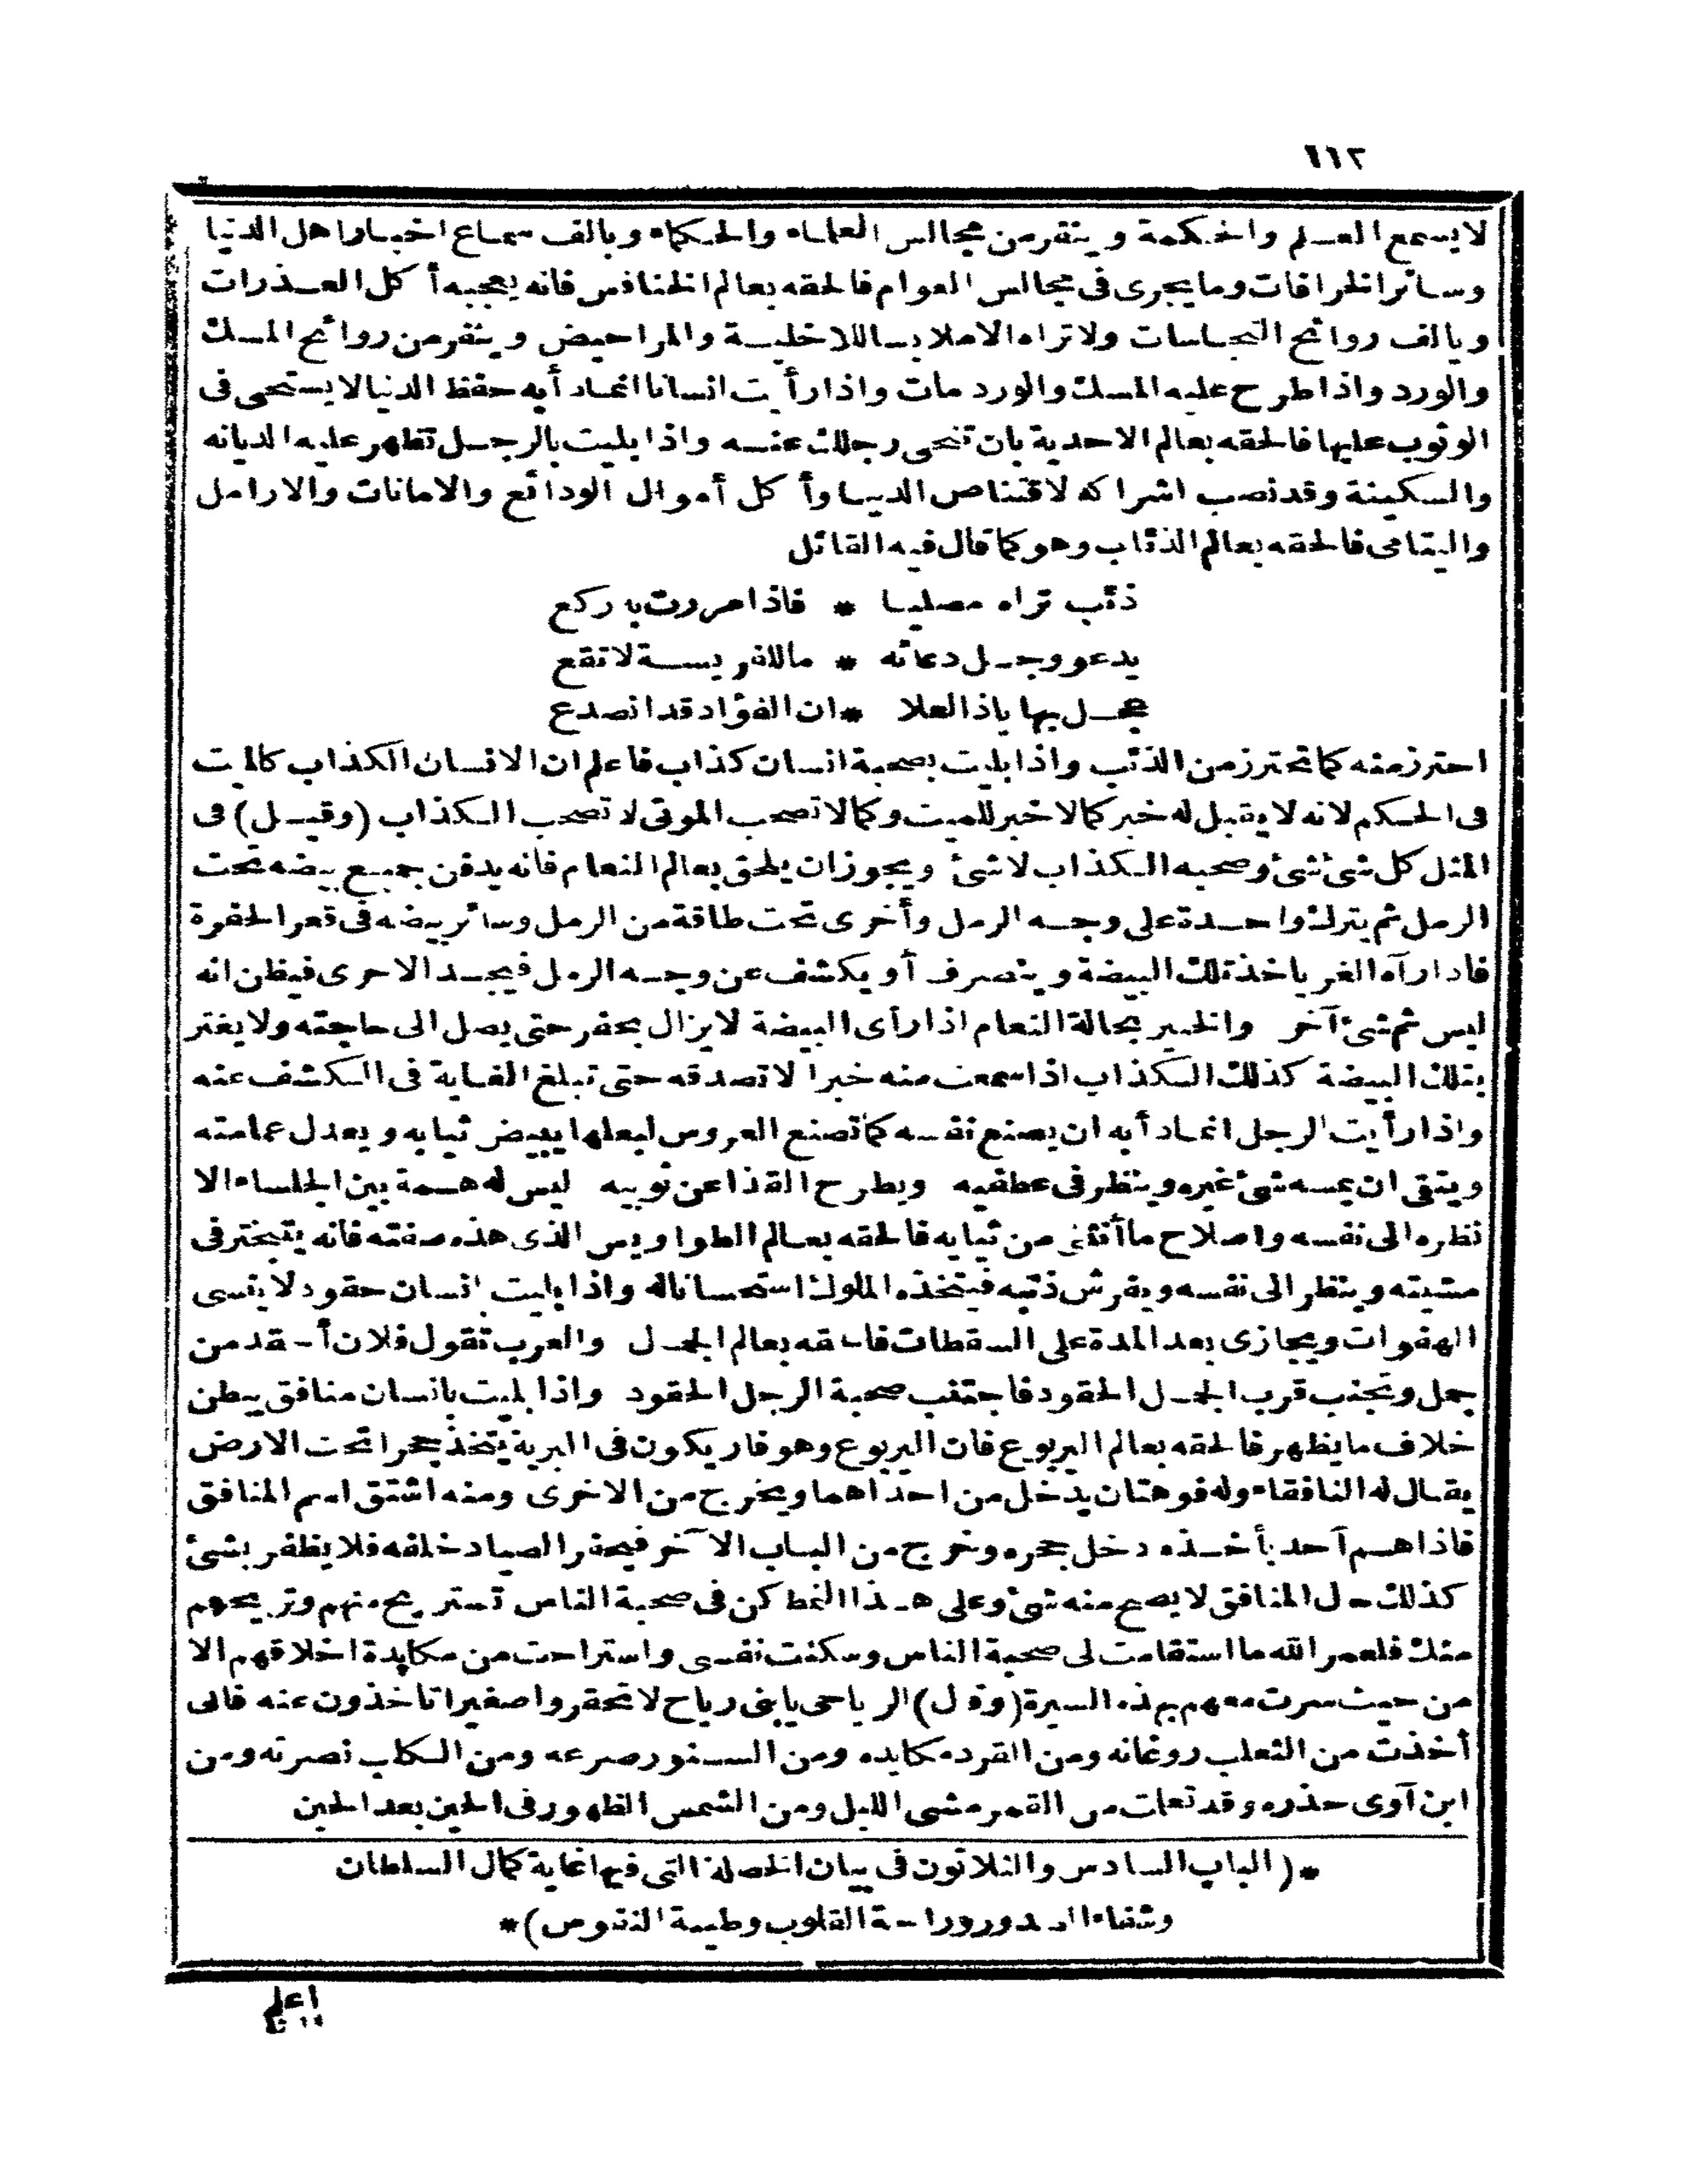 ١١٢
لا يسمع العلم والحكمة وينفر من مجالس العلماء والحكماء ويألف سماع اخبار اهل الدنيا
وسائر الخرافات وما يجرى فى مجالس العوام فالحقه بعالم الخنافس فانه يعجبه أكل العذرات
ويألف روائح النجاسات ولا تراه الا ملابسا للاخلية والمراحيض وينفر من روائح المسك
والورد واذا طرح عليه المسك والورد مات واذا رأيت انسانا انما دأبه حفظ الدنيا لا يستحى فى
الوثوب عليها فالحقه بعالم الاحدية بان تنحى رجلك عنه واذا بليت بالرجل تظهر عليه الديانه
والسكينة وقد نصب اشراكه لاقتناص الدنيا وأكل أموال الودائع والامانات والارامل
واليتامى فالحقه بعالم الذئاب وهو كما قال فيه القائل
ذئب تراه مصليا * فاذا مررت به ركع
يدعو وجل دعائه * ما للفريسة لا تقع
عجل بها ياذا العلا * ان الفؤاد قد انصدع
احترز منه كما تحترز من الذئب واذا بليت بصحبة انسان كذاب فاعلم ان الانسان الكذاب كالميت
فى الحكم لانه لا يقبل له خبر كما لا خبر للميت وكما لا تصحب الموتى لا تصحب الكذاب (وقيل) فى
المثل كل شئ شئ وصحبه الكذاب لا شئ ويجوز ان يلحق بعالم النعام فانه يدفن جميع بيضه تحت
الرمل ثم يترك واحدة على وجه الرمل وأخرى تحت طاقة من الرمل وسائر بيضه فى قعر الحفرة
فاذا رآه الغر ياخذ تلك البيضة وينصرف أو يكشف عن وجه الرمل فيجد الاخرى فيظن انه
ليس ثم شئ آخر والخبير بحالة النعام اذا رأى البيضة لا يزال يحفر حتى يصل الى حاجته ولا يغتر
بتلك البيضة كذلك الكذاب اذا سمعت منه خبرا لا تصدقه حتى تبلغ الغاية فى الكشف عنه
واذا رأيت الرجل انما دأبه ان يصنع نفسه كما تصنع العروس لبعلها يبيض ثيابه ويعدل عمامته
ويتقى ان يمسه شئ غيره وينظر فى عطفيه ويطرح القذا عن ثوبيه ليس له همة بين الجلساء الا
نظره الى نفسه واصلاح ما أنثنى من ثيابه فالحقه بعالم الطواويس الذى هذه صفته فانه يتبختر فى
مشيته وينظر الى نفسه ويفرش ذنبه فيتخذه الملوك استحسانا له واذا بليت انسان حقود لا ينسى
الهفوات ويجازى بعد المدة على السقطات فالحقه بعالم الجمل والعرب تقول فلان أحقد من
جمل وتجنب قرب الجمل الحقود فاجتنب صحبة الرجل الحقود واذا بليت بانسان منافق يبطن
خلاف ما يظهر فالحقه بعالم اليربوع فان اليربوع وهو فار يكون فى البرية يتخذ جحرا تحت الارض
يقال له النافقاء وله فوهتان يدخل من احداهما ويخرج من الاخرى ومنه اشتق اسم المنافق
فاذا هم أحد بأخذه دخل جحره وخرج من الباب الآخر فيحفر الصياد خلفه فلا يظفر بشئ
كذلك حال المنافق لا يصح منه شئ وعلى هذا النمط كن فى صحبة الناس تستريح منهم وتريحهم
منك فلعمر الله ما استقامت لى صحبة الناس وسكنت نفسى واستراحت من مكابدة اخلاقهم الا
من حيث سرت معهم بهذه السيرة (وقال) الرياحى يا بنى رياح لا تحقروا صغيرا تاخذون عنه فانى
أخذت من الثعلب روغانه ومن القرد مكايده ومن السنور صرعه ومن الكلب نصرته ومن
ابن آوى حذره وقد تعلمت من القمر مشى الليل ومن الشمس الظهور فى الحين بعد الحين
*(الباب السادس والثلاثون فى بيان الخصلة التى فيها غاية كمال السلطان
وشفاء الصدور وراحة القلوب وطيبة النفوس)*
اعلم